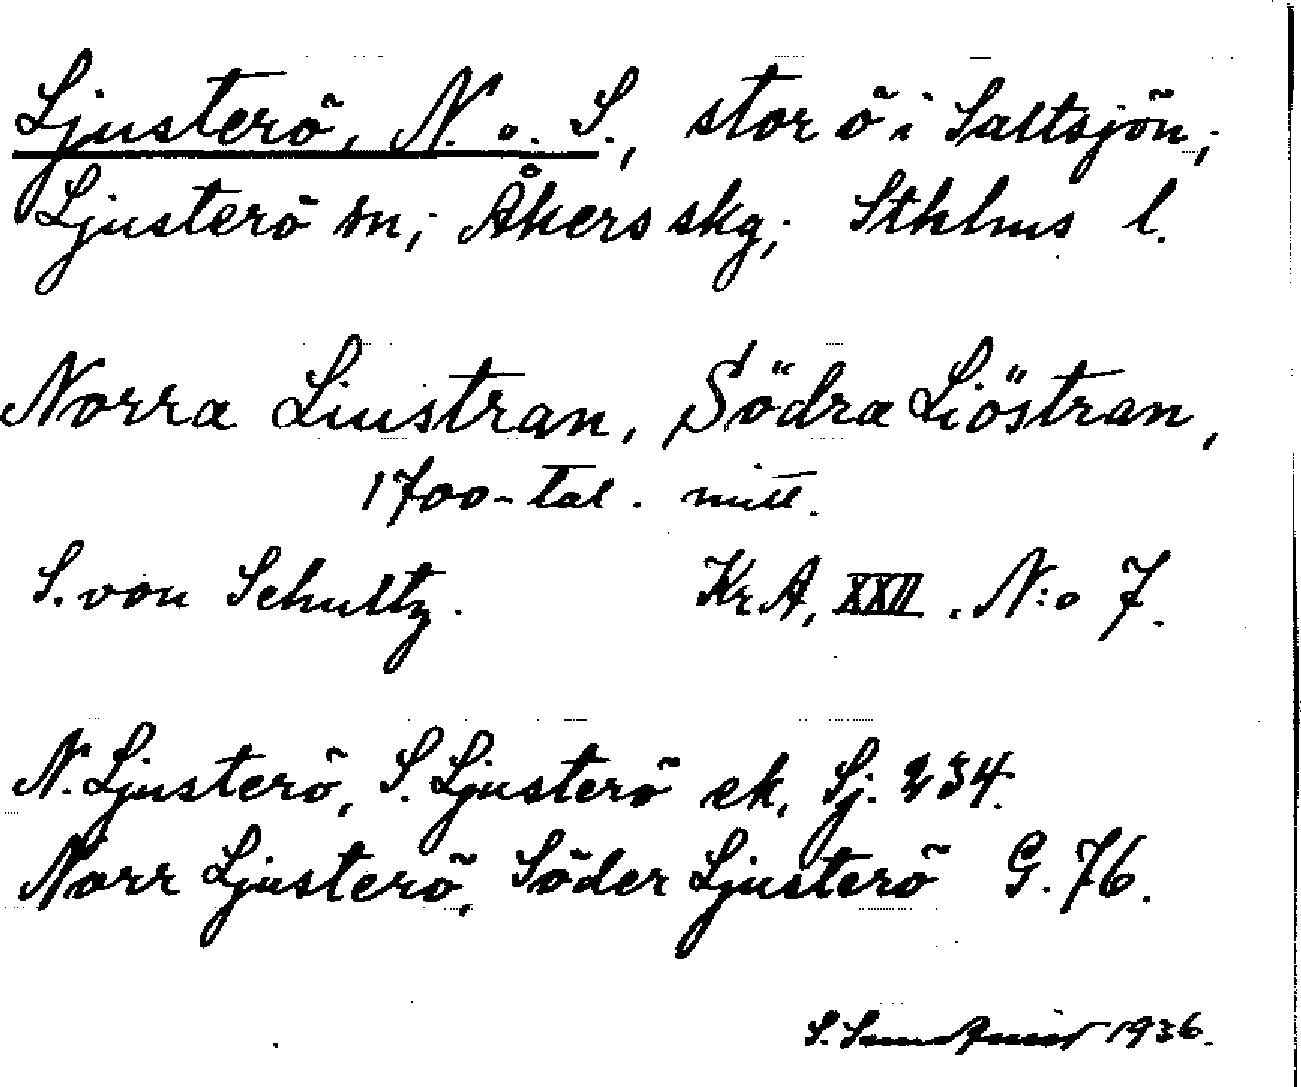 Ljusterö, N. o. S., stor ö i Saltsjön;
Ljusterö sn; Åkers skg; Sthlms l.
Norra Liustran, Södra Liöstran,
1700-tal. mitt.
S. von Schultz. Kr A, XXII. N:o 7.
N. Ljusterö, S. Ljusterö ek. Sj. 234.
Norr Ljusterö, Söder Ljusterö G. 76.
S. Sundquist 1936.